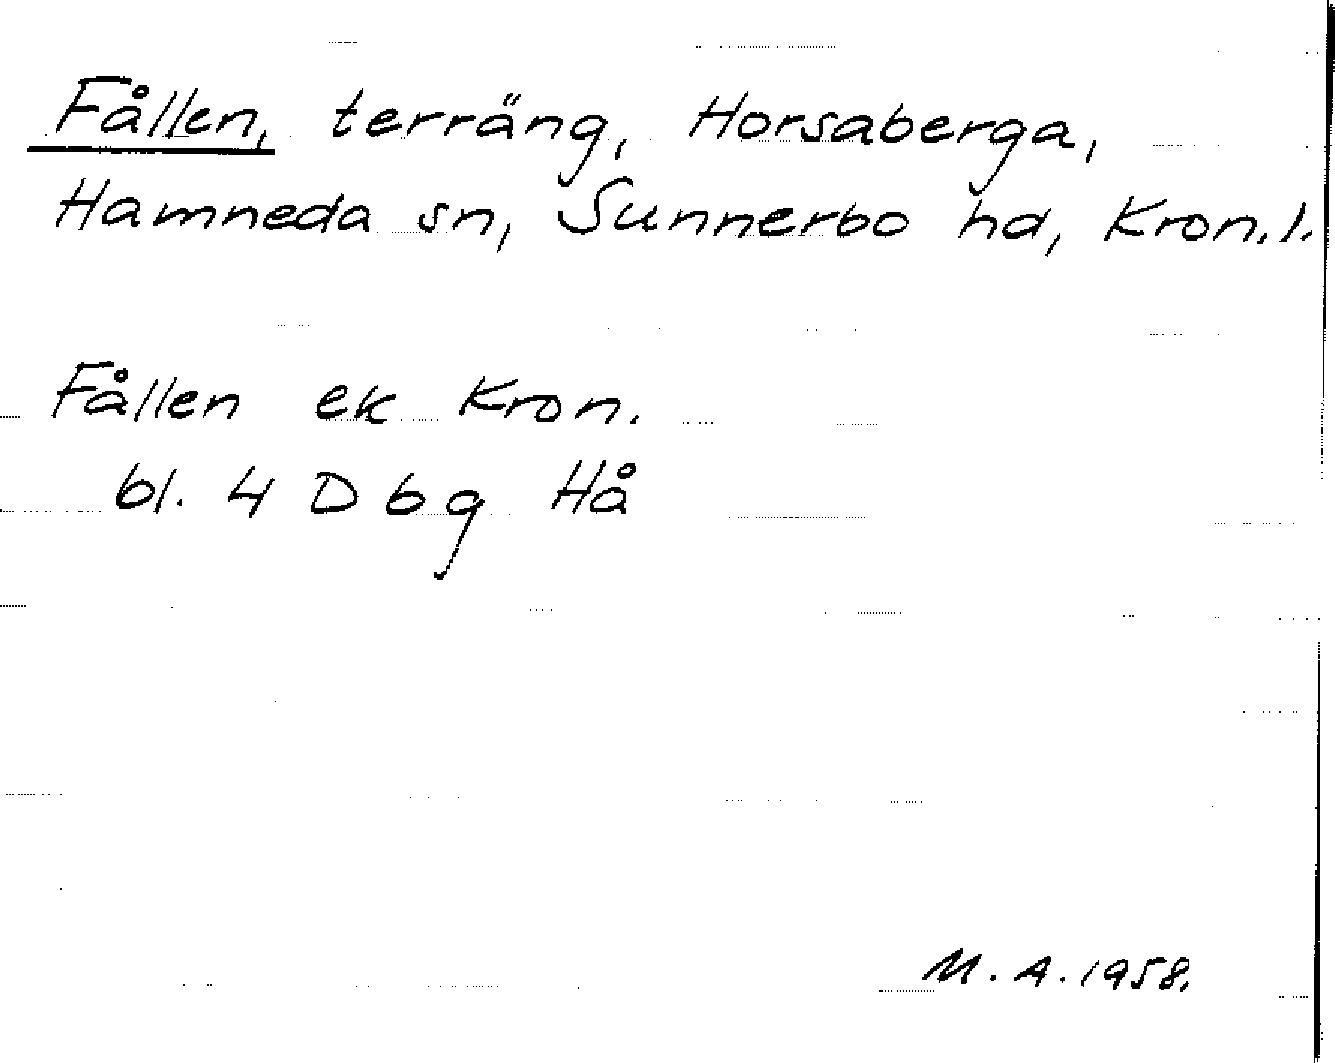 Fållen, terräng, Horsaberga,
Hamneda sn, Sunnerbo hd, Kron.l.
Fållen ek Kron.
bl. 4 D b g Hå
M. A. 1958.